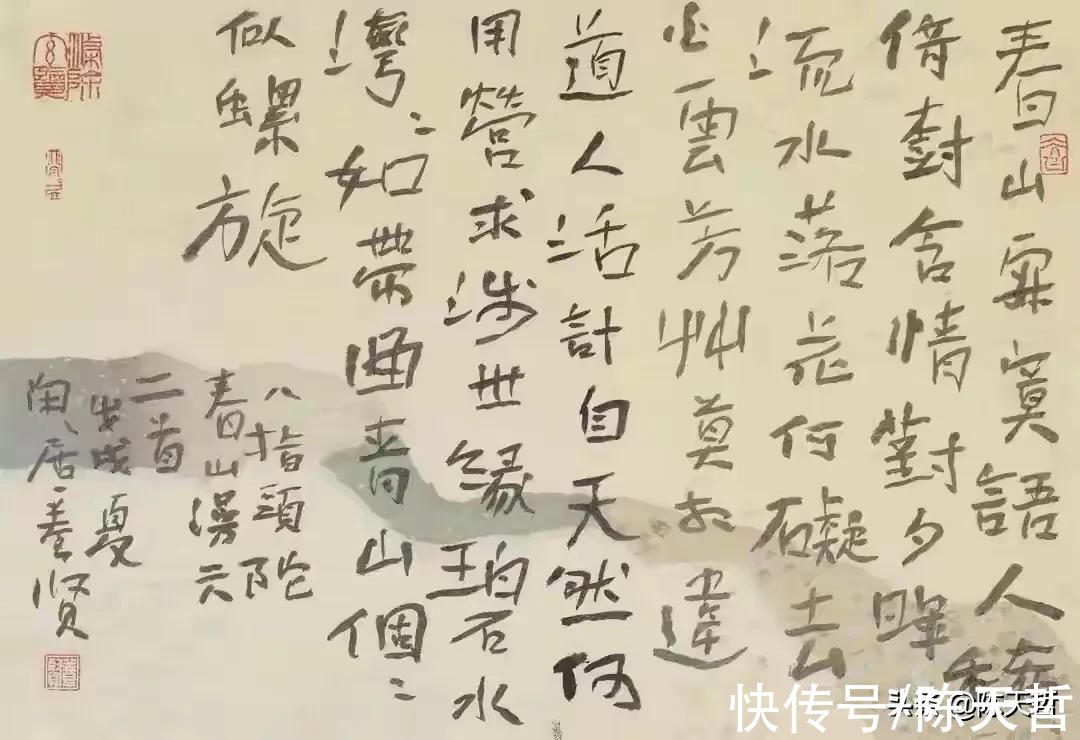 春山寂寞語人稀
倚樹含情對夕暉
流水落花何礙去
雲芳艸莫相違
道人活計自天然何
用營求涉世緣碧水
灣〻如帶畫青山個〻
似螺旋
八指頭陀
春山漫
二首
戊戌夏
闲居贤
快传号/陈天哲
头条 @陈天哲